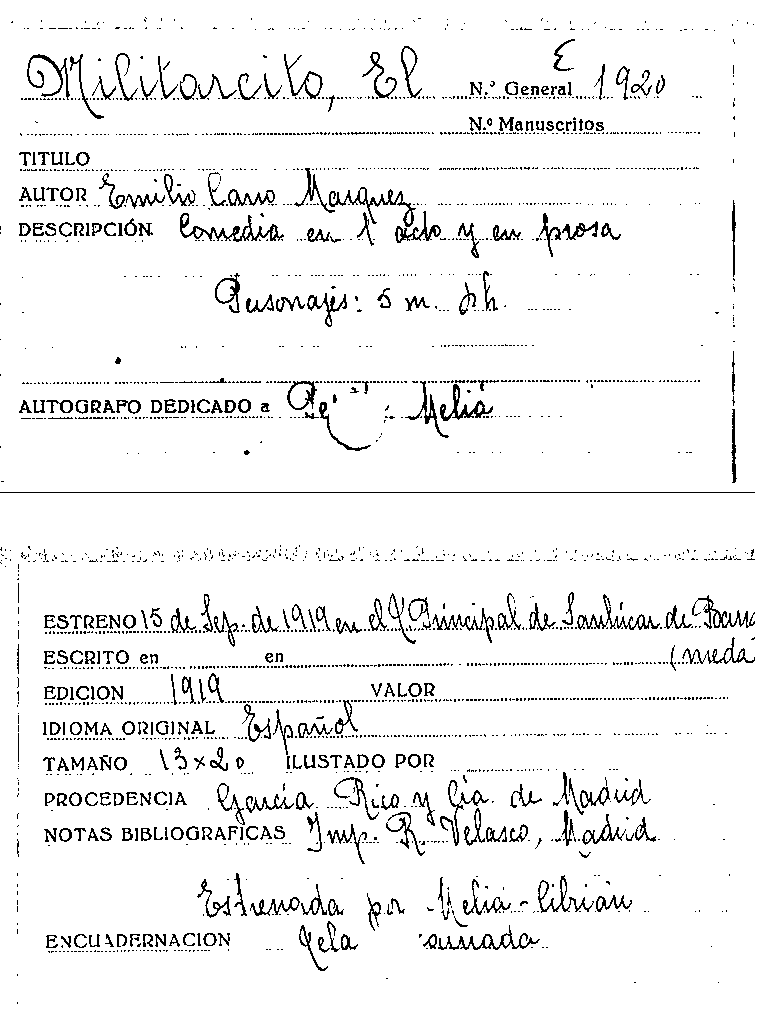 Militarcito, El
E
N.º General 1920
N.º Manuscritos
TITULO
AUTOR Emilio Cano Marquez
DESCRIPCIÓN Comedia en 1 acto y en prosa
Personajes: 5 m. h.
AUTOGRAFO DEDICADO a Pe : Meliá
ESTRENO 15 de Sep. de 1919 en el T. Principal de Sanlúcar de Barra
ESCRITO en en (meda
EDICION 1919 VALOR
IDIOMA ORIGINAL Español
TAMAÑO 13 x 20 ILUSTADO POR
PROCEDENCIA García Rico y Cía. de Madrid
NOTAS BIBLIOGRAFICAS Imp. R. Velasco, Madrid
Estrenada por Meliá-Cibrián
ENCUADERNACION Tela